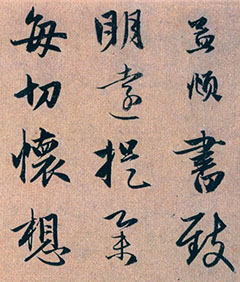 孟頫書致
明遠提舉
每切懷想